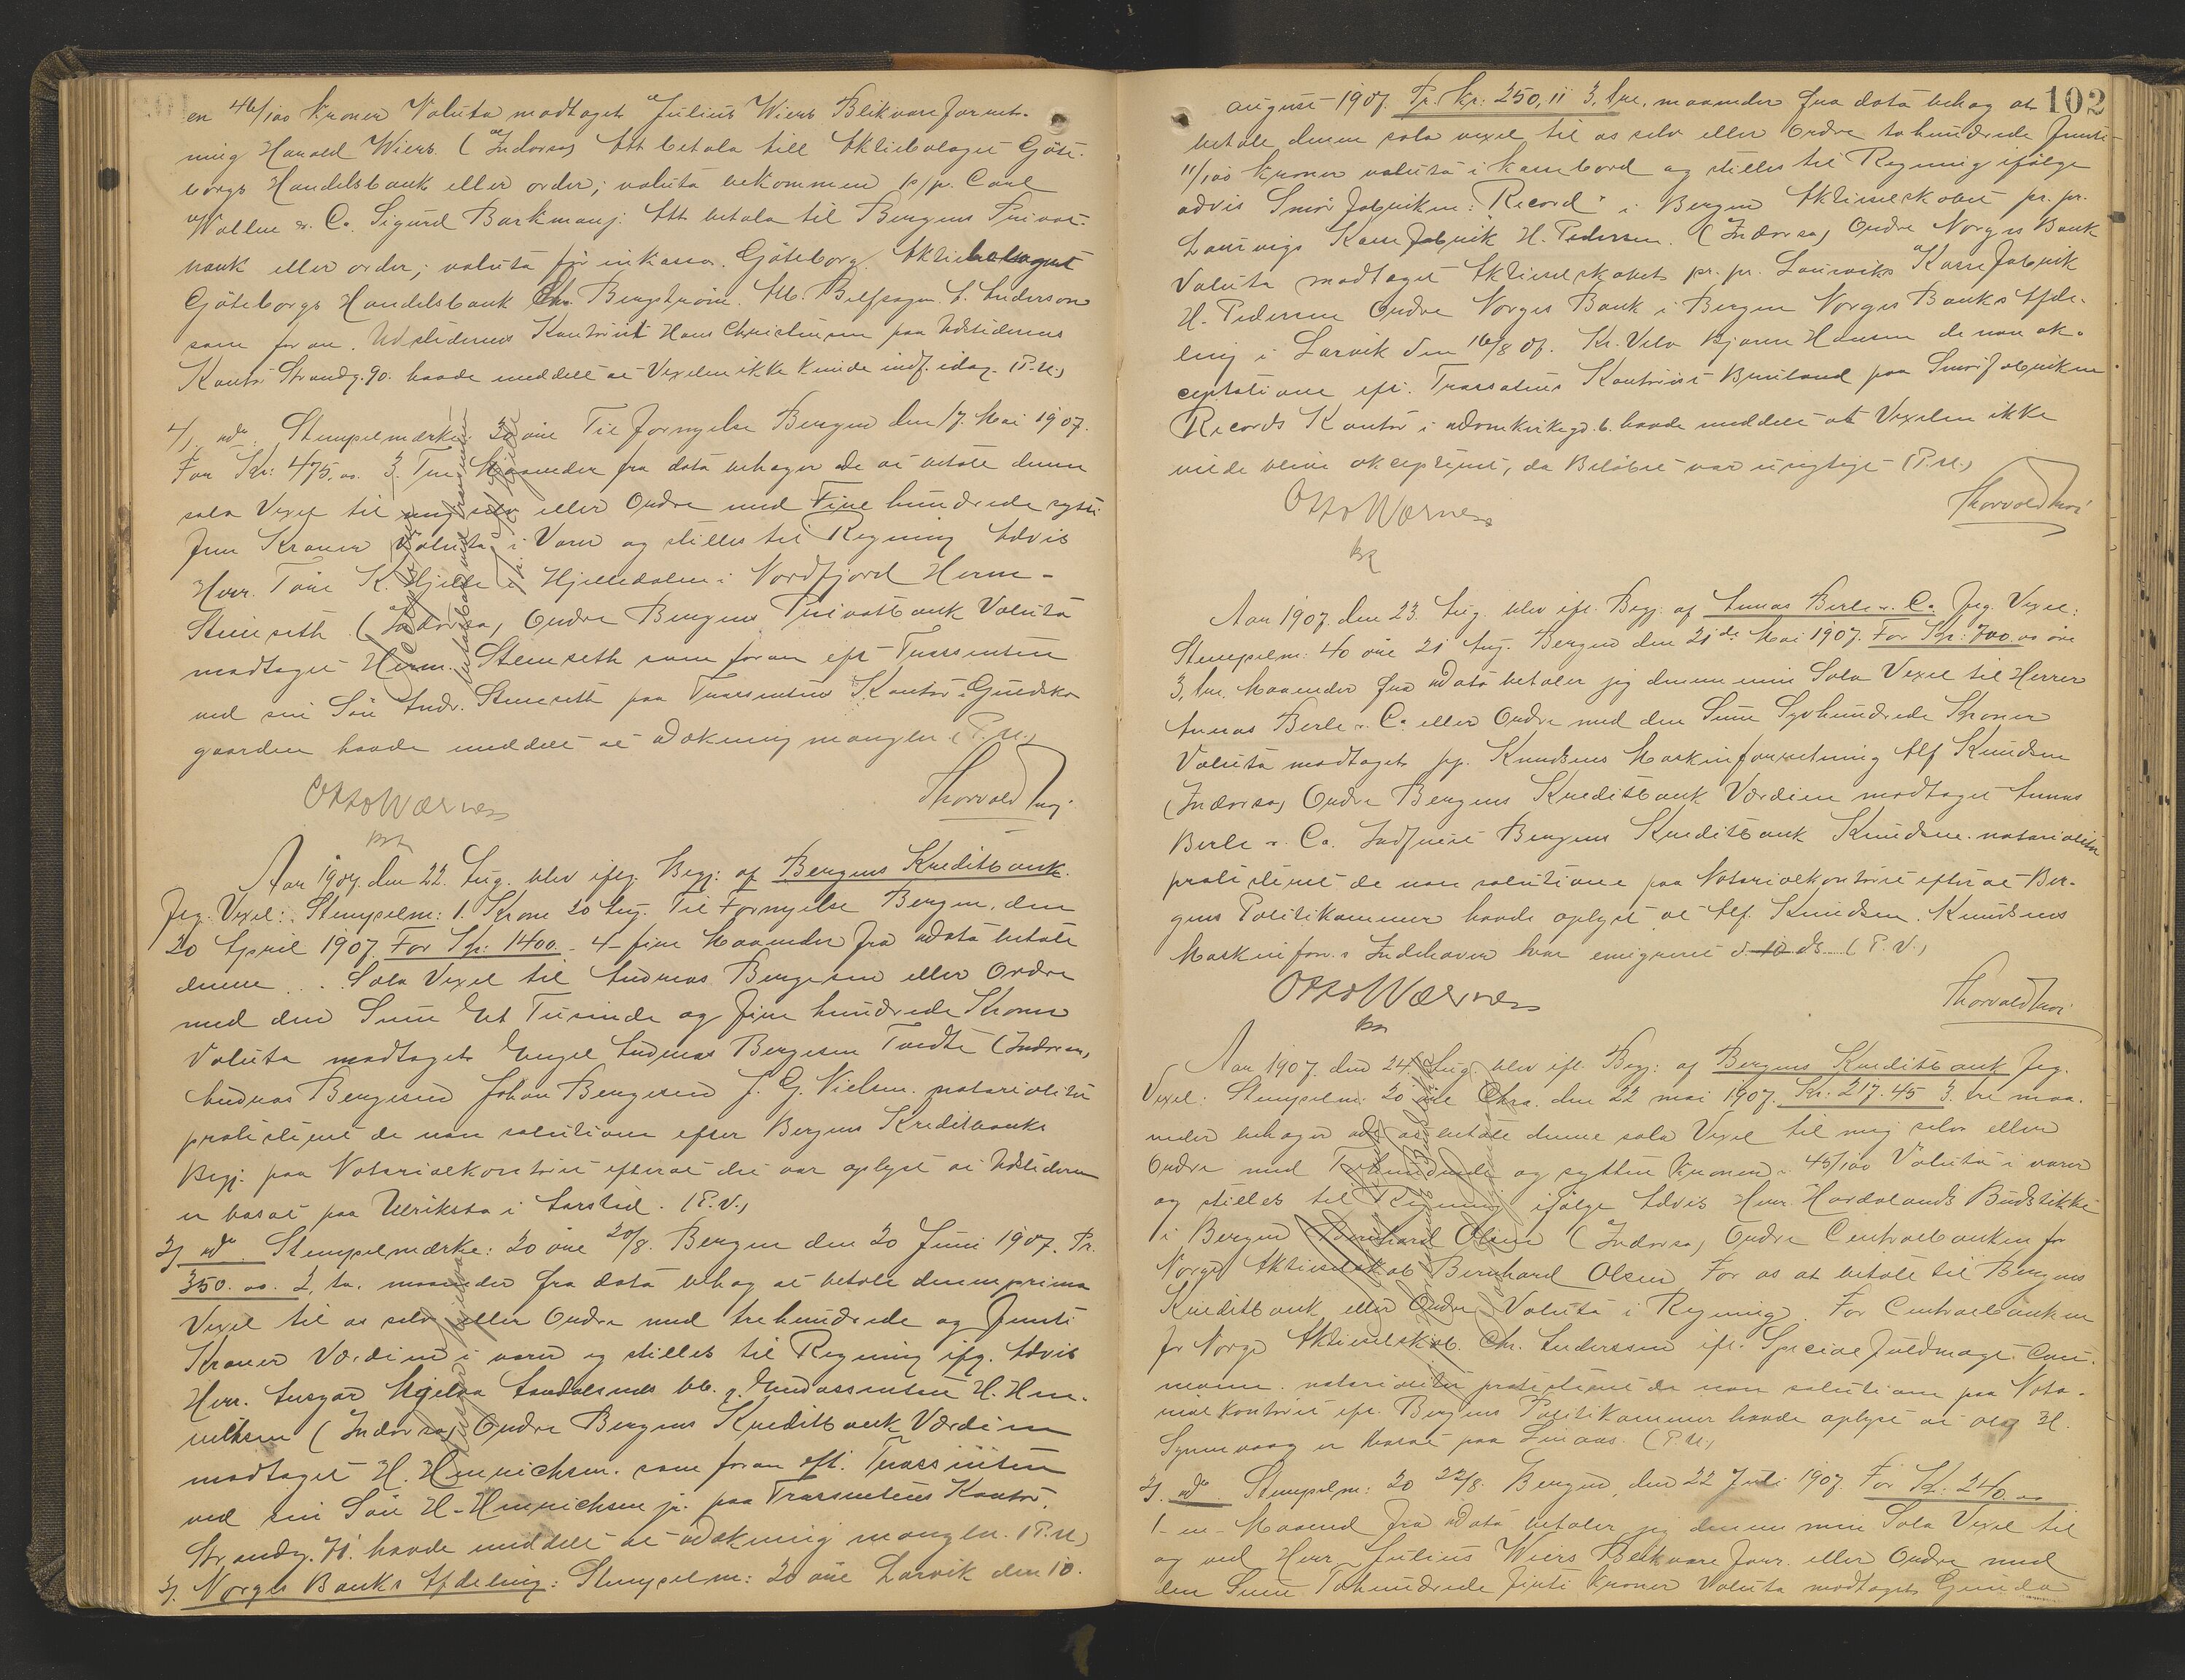 en 46/100 Kroner Valuta modtaget Julius Wiers Blikvareforret-
ning Harald Wiers. (Indorso) Att betala till Aktiebolaget Göte-
borgs Handelsbank eller order; valuta bekommen p/p. Carl
Wollin & Co. Sigurd Barkmanj: Att betala til Bergens Privat-
bank eller order; valuta för inkasso. Göteborg. Aktiebolaget
Göteborgs Handelsbank Chr. Bergström. A. Anderson
som foran. Udstederens Kontorist Hans Christensen paa Udstederens
Kontor Strandg. 90. havde meddelt at Vexelen ikke kunde indf. idag. (P.U.)
4) do. Stempelmærke: 30 øre Til fornyelse Bergen den 17. Mai 1907.
For Kr: 475.00. 3. Tre Maaneder fra dato behager de at betale denne
sola Vexel til mig selv eller Ordre med Fire hundrede sytti
fem Kroner Valuta i Varer og stilles til Regning Advis
Herr. Tore K. Hjelle i Hjelledalen i Nordfjord Herm-
Stenseth (Indorso) Ordre Bergens Privatbank Valuta
modtaget Herm. Stenseth som foran eft Trassenten
ved sin Søn Andr. Stenseth paa Trassentens Kontor i Guldsko-
gaarden havde meddelt at Dækning mangler. (P.U.)
Otto Wærnes Thorvald
Aar 1907. den 22. Aug. blev iflg. Begj: af Bergens Kreditbank.
Jeg. Vexel: Stempelm: 1. Krone 20 Aug. Til Fornyelse Bergen, den
20 April 1907. For Kr: 1400.- 4- fire Maaneder fra dato betale
denne . . Sola Vexel til Andreas Bergesen eller Ordre
med den Sum Et Tusinde og fire hundrede Kroner
Valuta modtaget Engel Andreas Bergesen Tvedte (Indorso)
Andreas Bergesen Johan Bergesen J. G. Nielsen. notarialiter
protesteret de non solutione efter Bergens Kreditbanks
Begj. paa Notarialkontoret efterat det var oplyst at Udstederen
er bosat paa Ulriksta i Aarstad. (P.V.)
2) do. Stempelmærke: 20 øre 20/8. Bergen den 20 Juni 1907. Pr.
350.00. 2, to. maaneder fra dato behag at betale denne prima
Vexel til os selv eller Ordre med trehundrede og femti
Kroner Værdien i varer og stilles til Regning iflg. Advis
Herr. Ansgar Mjelva Aandalsnes H. Hen-
richsen (Indorso) Ordre Bergens Kreditbank Værdien
modtaget H. Henrichsen. som foran eft. Trassenten
ved sin Søn H. Henrichsen jr. paa Trassentens Kontor.
Strandg. 71. havde meddelt at Dækning mangler. (P.U.)
3) Norges Banks Afdeling: Stempelm: 20 øre Larvik den 10.
102
august 1907. Pr. Kr: 250,11 3, tre, maaneder fra dato behag at
betale denne sola vexel til os selv eller Ordre tohundrede femti
11/100 Kroner valuta i Kassebord og stilles til Regning ifølge
advis Smørfabriken "Record" i Bergen Aktieselskabet pr. pr.
Laurvigs Kassefabrik H. Pedersen. (Indorso) Ordre Norges Bank
Valuta modtaget Aktieselskabet pr. pr. Laurviks Kassefabrik
H. Pedersen Ordre Norges Bank i Bergen Norges Banks Afde-
ling i Larvik den 16/8 07. Kr. Velo Bjarne Hansen de non ak-
ceptatione eft. Trassatens Kontorist Brusland paa Smørfabriken
Records Kontor i Domkirkegd. 6. havde meddelt at Vexelen ikke
vilde blive akcepteret, da Beløbet var urigtigt (P.U.)
Otto Wærnes Thorvald
Aar 1907. den 23. Aug. blev ifl. Begj. af Annas Berle & Co. Jeg. Vexel:
Stempelm: 40 øre 21 Aug. Bergen den 21de Mai 1907. For Kr: 700.00 øre
3, tre. Maaneder fra Dato betaler jeg denne min Sola Vexel til Herrer
Annas Berle & Co eller Ordre med den Sum Syvhundrede Kroner
Valuta modtaget pp. Knudsens Maskinforretning Alf Knudsen
(Indorso) Ordre Bergens Kreditbank Værdien modtaget Annas
Berle & Co. Indfriet Bergens Kreditbank Knudsen. notarialiter
protesteret de non solutione paa Notarialkontoret efter at Ber-
gens Politikammer havde oplyst at Alf. Knudsen. Knudsens
Maskinforr.s Indehaver har emigreret d. ds. (P.V.)
Otto Wærnes Thorvald
Aar 1907. den 24. Aug. blev ifl. Begj: af Bergens Kreditbank Jeg.
Vexel: Stempelm: 20 øre Chra. den 22 mai 1907. Kr: 217.45 3. tre maa-
neder behager de at betale denne sola Vexel til mig selv eller
Ordre med Tohundrede og sytten Kroner 45/100 Valuta i varer
og stilles til Regning ifølge Advis Herr. Hordalands Budstikke
i Bergen Bernhard Olsen (Indorso) Ordre Centralbanken for
Norge Aktieselskab Bernhard Olsen For os at betale til Bergens
Kreditbank eller Ordre Valuta i Regning. For Centralbanken
for Norge Aktieselskab. Chr. Anderssen ifl. Special fuldmagt.
notarialiter protesteret de non solutione paa Nota-
rialkontoret eft. Bergens Politikammer havde oplyst at Olaf H.
Synnevaag er bosat paa Lindaas. (P.U.)
2) do. Stempelm: 20 22/8. Bergen, den 22 Juli 1907. For Kr. 240.00
1- en- Maaned fra Dato betaler jeg denne min Sola Vexel til
og ved Herr Julius Wiers Blikvareforr. eller Ordre med
den Sum Tohundrede firti Kroner Valuta modtaget Gunda